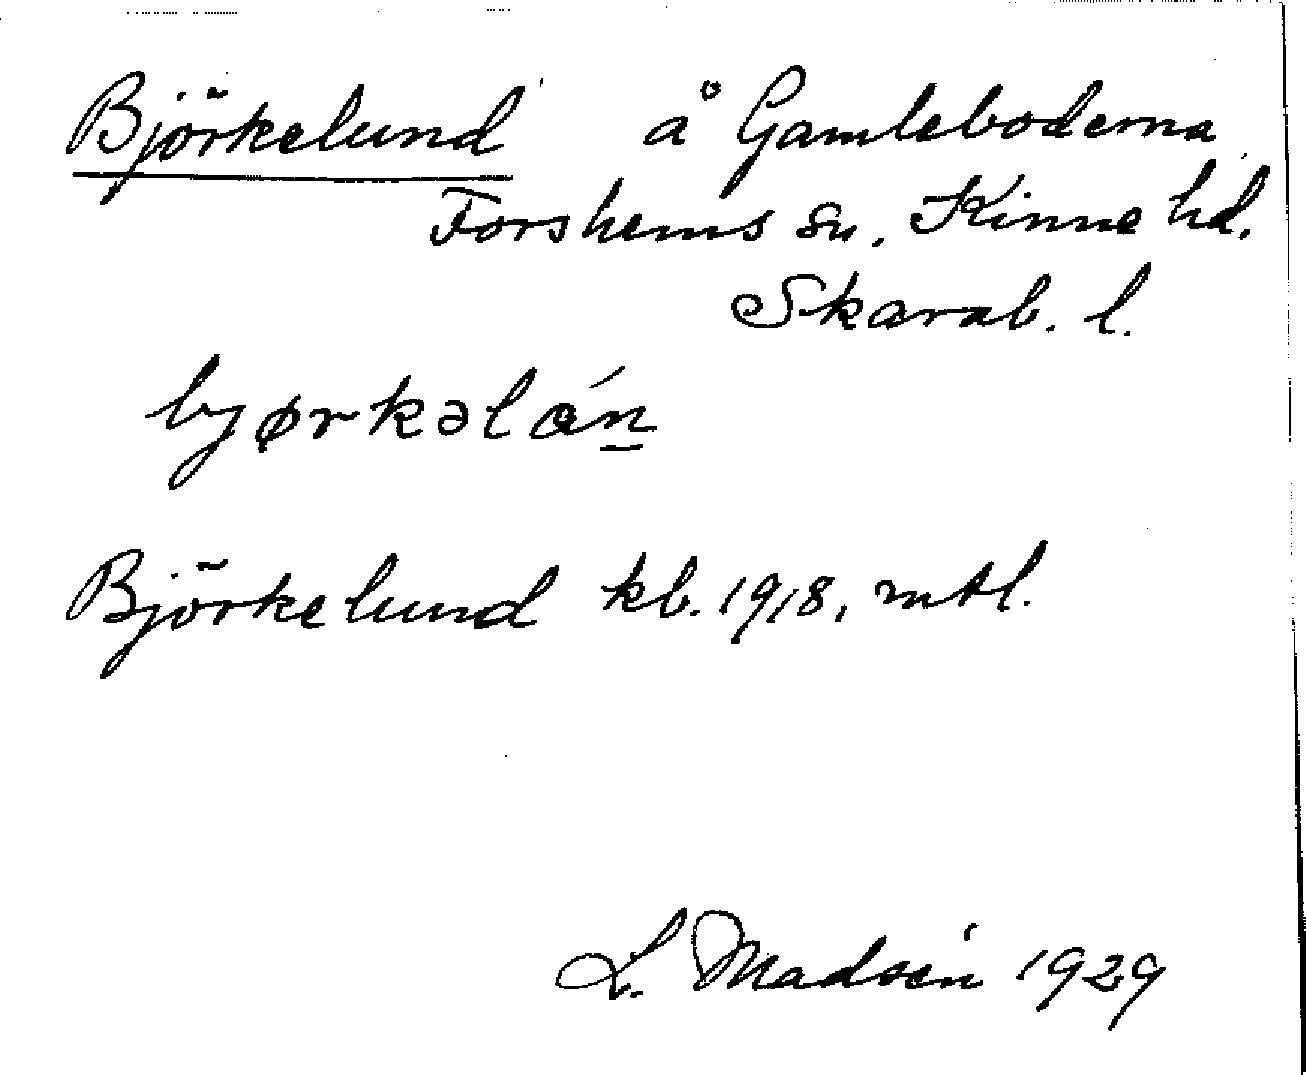 Björkelund å Gamleboderna
Forshems sn. Kinne hd.
Skarab. l.
bjørkəlán
Björkelund kb. 1918, mtl.
L. Madsén 1929